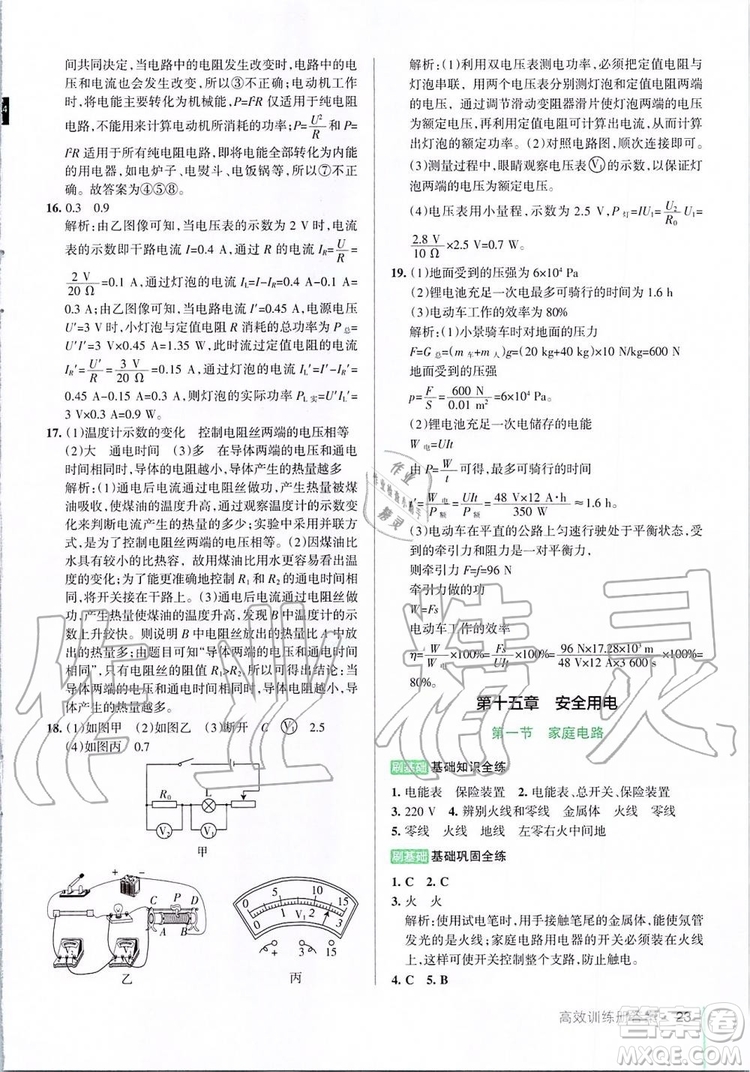 间共同决定，当电路中的电阻发生改变时，电路中的电
压和电流也会发生改变，所以③不正确；电动机工作
时，将电能主要转化为机械能，P=I²R仅适用于纯电阻
电路，不能用来计算电动机所消耗的功率；P=U²/R和P=
I²R适用于所有纯电阻电路，将电能全部转化为内能
的用电器，如电炉子、电熨斗、电饭锅等，所以⑦不正
确。故答案为④⑤⑧。
16. 0.3 0.9
解析：由乙图像可知，当电压表的示数为2 V时，电流
表的示数即干路电流 I=0.4 A，通过 R 的电流 I_R=U/R
=2 V/20 Ω=0.1 A，通过灯泡的电流 I_L=I-I_R=0.4 A-0.1 A=
0.3 A；由乙图像可知，当电流 I′=0.45 A时，电压为
U′=3 V，小灯泡与定值电阻 R 消耗的总功率 P总=
U′I′=3 V×0.45 A=1.35 W，此时流过定值电阻的电流
I_R′=U′/R=3 V/20 Ω=0.15 A，通过灯泡的电流 I_L′=I′-I_R′=
0.45 A-0.15 A=0.3 A，则灯泡的实际功率 P_L实=U′I_L′=
3 V×0.3 A=0.9 W。
17. (1)温度计示数的变化 控制电阻丝两端的电压相等
(2)大 通电时间 (3)多 在导体两端的电压和通电
时间相同时，导体的电阻越小，导体产生的热量越多
解析：(1)通电后电流通过电阻丝做功，产生热量被煤
油吸收，使煤油的温度升高，该实验中用温度计示数变
化来判断电流产生的热量的多少；实验中采用并联方
式，是为了控制电阻丝两端的电压相等。(2)因煤油比
水具有较小的比热容，故用煤油比用水更容易看出温
度的变化；为了能更准确地控制 R₁ 和 R₂ 的通电时间
相等，开关应接在干路上。(3)通电后电流通过电阻丝
做功，产生热量使煤油的温度升高，发现 B 中温度计的
示数上升较快。则说明 B 中电阻丝放出的热量比 A 中
放出的多；由题意可知，在“导体两端的电压和通电时间
相同”时，有电阻丝的阻值 R₁>R₂，所以得到的结论为：当
导体两端的电压和通电时间相同时，导体的电阻越小，
导体产生的热量越多。
18. (1)如图甲 (2)如图乙 (3)断开 C V₁ 2.5
(4)如图丙 0.7
R₀ L
V₂ V₁
甲
P
C D
A B
乙
0 5 10 15
0 1 2 3
V
- 3 15
丙
解析：(1)利用双电压表测电功率，必须把定值电阻与
灯泡串联，用两个电压表分别测灯泡和定值电阻两端
的电压，通过调节滑动变阻器滑片使灯泡两端的电压
为额定电压，用定值电阻可计算出额定电流，即可计算
出灯泡的额定功率。(2)对照电路图，顺次连接即可。
(3)测量过程中，眼睛观察电压表V₁的示数，以保证灯
泡两端的电压为额定电压。
(4)电压表用小量程，示数为2.8 V，P灯=IU₁=U₂/R₀ U₁=
2.8 V/10 Ω×2.5 V=0.7 W。
19. (1)地面受到的压强为6×10⁴ Pa
(2)锂电池充足一次电最多可骑行的时间为1.6 h
(3)电动车工作的效率为80%
解析：(1)小景骑车时对地面的压力
F=G总=(m车+m人)g=(20 kg+40 kg)×10 N/kg=600 N
地面受到的压强
p=F/S=600 N/0.01 m²=6×10⁴ Pa。
(2)锂电池充足一次电储存的电能
W电=UIt
由 P=W/t可得，可骑行的时间
t=W电/P额=UIt/P额=48 V×12 A·h/350 W≈1.6 h。
(3)电动车在平直的公路上匀速行驶处于平衡状态，受
到的牵引力和阻力是一对平衡力，
则牵引力 F=f=96 N
牵引力做的功
W=Fs
电动车工作的效率
η=W/W电×100%=Fs/W电×100%=96 N×17.28×10³ m/48 V×12 A×3 600 s×100%=
80%。
第十五章 安全用电
第一节 家庭电路
刷基础 基础知识全练
1. 电能表 保险装置 2. 电能表、总开关、保险装置
3. 220 V 4. 辨别火线和零线 金属体 火线 零线
5. 零线 火线 地线 左零右火中间地
刷基础 基础巩固全练
1. C 2. C
3. 火 火
解析：使用试电笔时，用手接触笔尾的金属体，能使氖管
发光的是火线；家庭电路用电器的开关必须接在火线
上，这样能使开关控制整个支路，防止触电。
4. C 5. B
高效训练册答案 23
作业精灵
答案圈
MXQE.COM